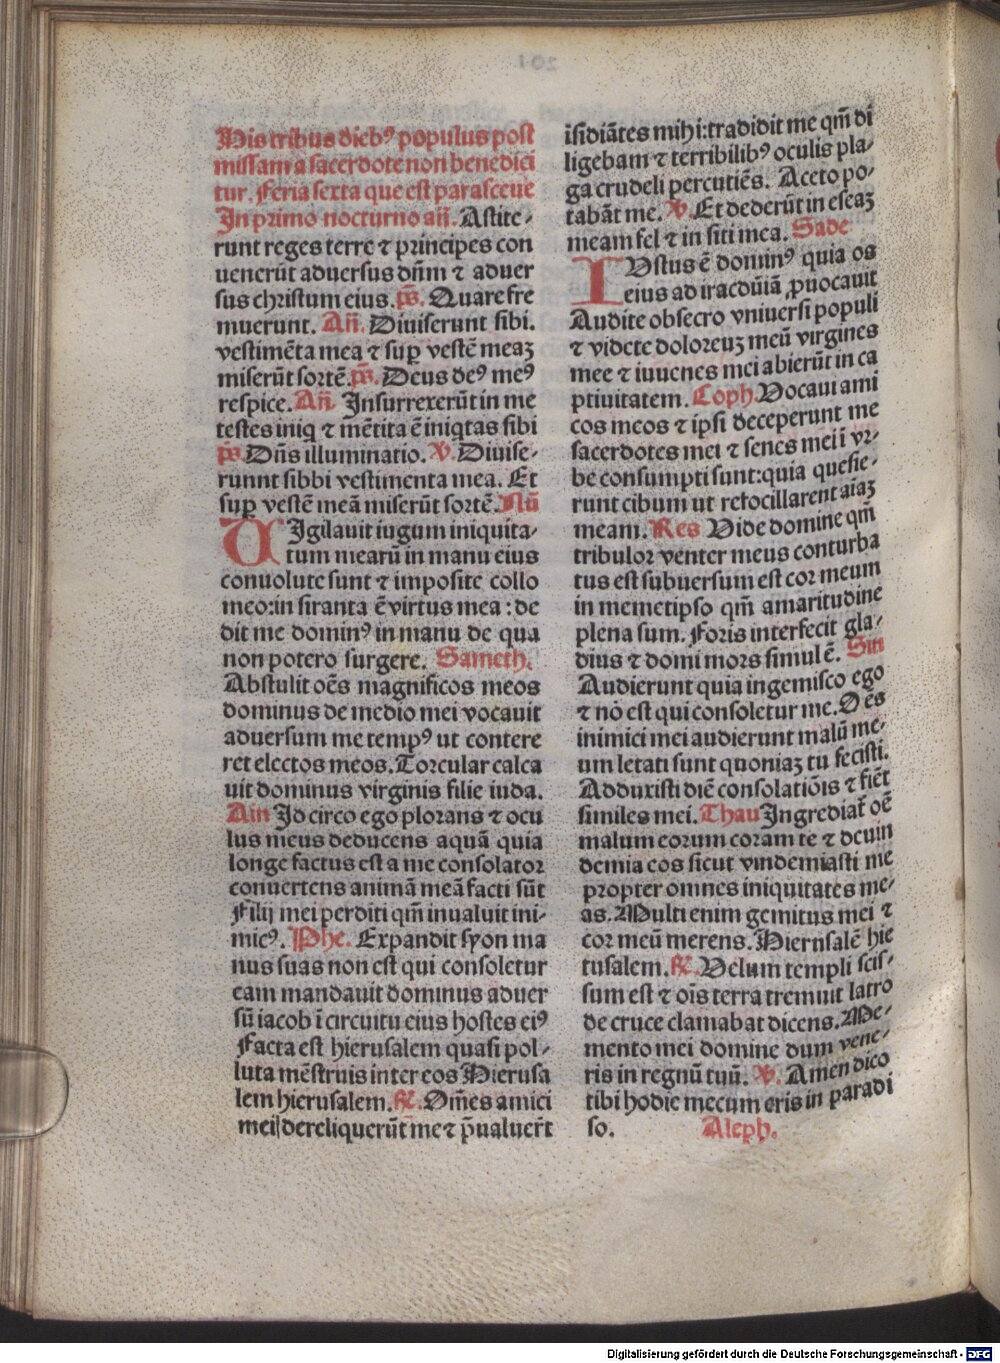 His tribus dieb⁹ populus post
missam a sacerdote non benedici
tur. Feria sexta que est parasceue
In primo nocturno añ. Astite⸗
runt reges terre ⁊ principes con
uenerūt aduersus dñm ⁊ aduer
sus christum eius. p̄s. Quare fre
muerunt. Añ. Diuiserunt sibi.
vestimēta mea ⁊ sup̱ vestē meaꝫ
miserūt sortē. p̄s. Deus de⁹ me⁹
respice. Añ. Insurrexerūt in me
testes iniq ⁊ mētita ē iniqtas sibi
p̄s. Dñs illuminatio. ℣. Diuise⸗
runnt sibbi vestimenta mea. Et
sup̱ vestē meā miserūt sortē. Nū
VIgilauit iugum iniquita⸗
tum mearū in manu eius
conuolute sunt ⁊ imposite collo
meo:in firanta ē virtus mea : de
dit me domin⁹ in manu de qua
non potero surgere. Sameth.
Abstulit oēs magnificos meos
dominus de medio mei vocauit
aduersum me temp⁹ ut contere
ret electos meos. Torcular calca
uit dominus virginis filie iuda.
Ain Id circo ego plorans ⁊ ocu
lus meus deducens aquā quia
longe factus est a me consolator
conuertens animā meā facti sūt
Filij mei perditi qm̄ inualuit ini⸗
mic⁹. Phe. Expandit syon ma
nus suas non est qui consoletur
eam mandauit dominus aduer
sū iacob ī circuitu eius hostes ei⁹
Facta est hierusalem quasi pol⸗
luta mēstruis inter eos Hierusa
lem hierusalem. ℟. Om̄es amici
mei dereliquerūt me ⁊ p̄ualuer̄t
isidiātes mihi:tradidit me qm̄ di
ligebam ⁊ terribilib⁹ oculis pla⸗
ga crudeli percutiēs. Aceto po⸗
tabāt me. ℣. Et dederūt in escaꝫ
meam fel ⁊ in siti mea. Sade
IVstus ē domin⁹ quia os
eius ad iracdūiā ꝓuocauit
Audite obsecro vniuersi populi
⁊ videte doloreuꝫ meū virgines
mee ⁊ iuuenes mei abierūt in ca
ptiuitatem. Coph. Vocaui ami
cos meos ⁊ ipsi deceperunt me
sacerdotes mei ⁊ senes mei ī vr⸗
be consumpti sunt:quia quesie⸗
runt cibum ut refocillarent aīaꝫ
meam. Res Vide domine qm̄
tribulor venter meus conturba
tus est subuersum est cor meum
in memetipso qm̄ amaritudine
plena sum. Foris interfecit gla⸗
dius ⁊ domi mors simul ē. Sin
Audierunt quia ingemisco ego
⁊ nō est qui consoletur me. Oēs
inimici mei audierunt malū me⸗
um letati sunt quoniaꝫ tu fecisti.
Adduxisti diē consolatiōis ⁊ fiēt
similes mei. Thau Ingrediat̄ oē
malum eorum coram te ⁊ deuin
demia eos sicut vindemiasti me
propter omnes iniquitates me⸗
as. Multi enim gemitus mei ⁊
cor meū merens. Hierusalē hie
rusalem. ℟. Velum templi scis⸗
sum est ⁊ oīs terra tremuit latro
de cruce clamabat dicens. Me⸗
mento mei domine dum vene⸗
ris in regnū tuū. ℣. Amen dico
tibi hodie mecum eris in paradi
so. Aleph.
Digitalisierung gefördert durch die Deutsche Forschungsgemeinschaft - DFG